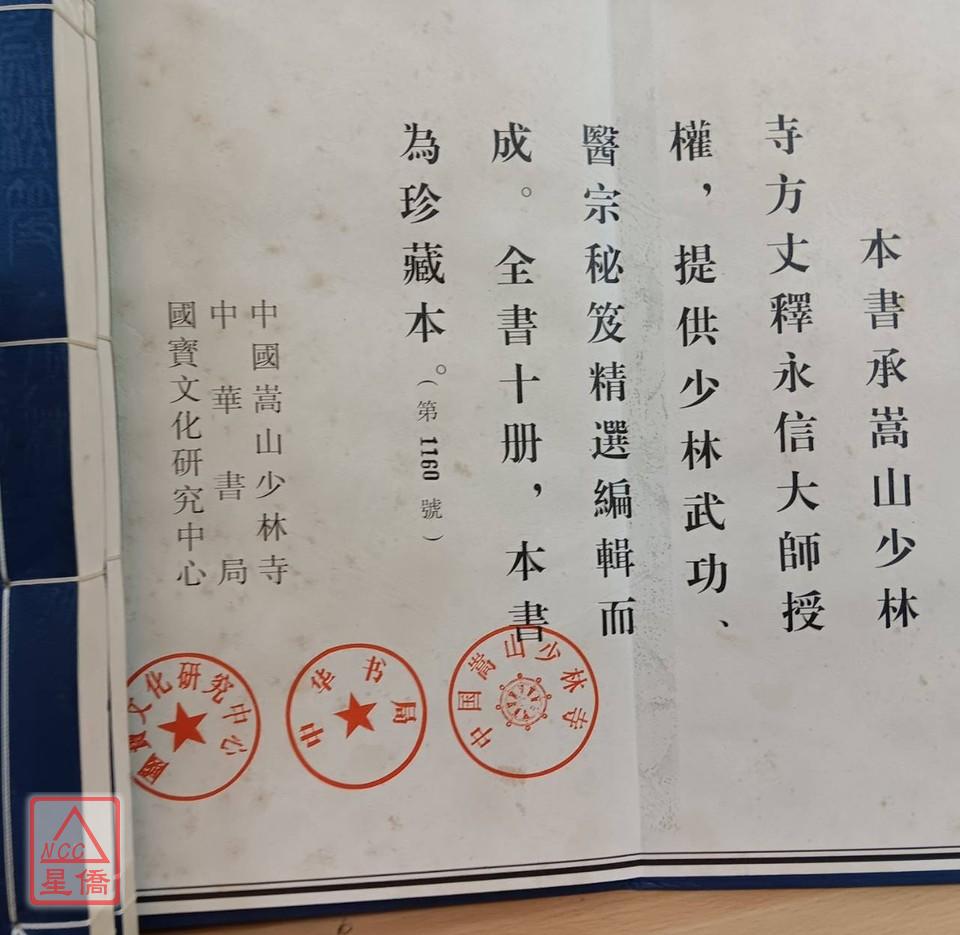 本書承嵩山少林
寺方丈釋永信大師授
權，提供少林武功、
醫宗秘笈精選編輯而
成。全書十册，本書
為珍藏本。（第1160號）
中國嵩山少林寺
中華書局
國寶文化研究中心
中国嵩山少林寺
中华书局
國寶文化研究中心
NCC
星僑